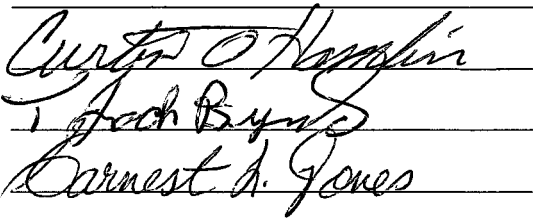 Curtis O Hamlin
T. Jack Byrns
Earnest L. Jones